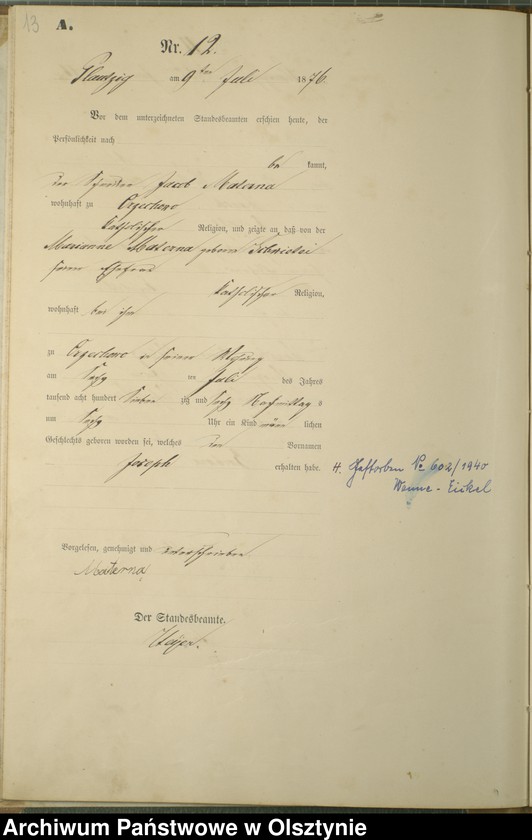 13
A.
Nr. 12.
am 9ten Juli 1876.
Vor dem unterzeichneten Standesbeamten erschien heute, der
Persönlichkeit nach
be kannt,
der Jacob Materna
wohnhaft zu
katholischer Religion, und zeigte an, daß von der
Marianne Materna geborne
seiner Ehefrau
katholischer Religion,
wohnhaft bei ihm
zu in seiner Wohnung
am sechs ten Juli des Jahres
tausend acht hundert sieben zig und sechs Nachmittags
um sechs Uhr ein Kind männ lichen
Geschlechts geboren worden sei, welches den Vornamen
Joseph
erhalten habe.
H. Gestorben No 602/1940
Wanne-Eickel
Vorgelesen, genehmigt und unterschrieben
Materna
Der Standesbeamte.
Archiwum Państwowe w Olsztynie